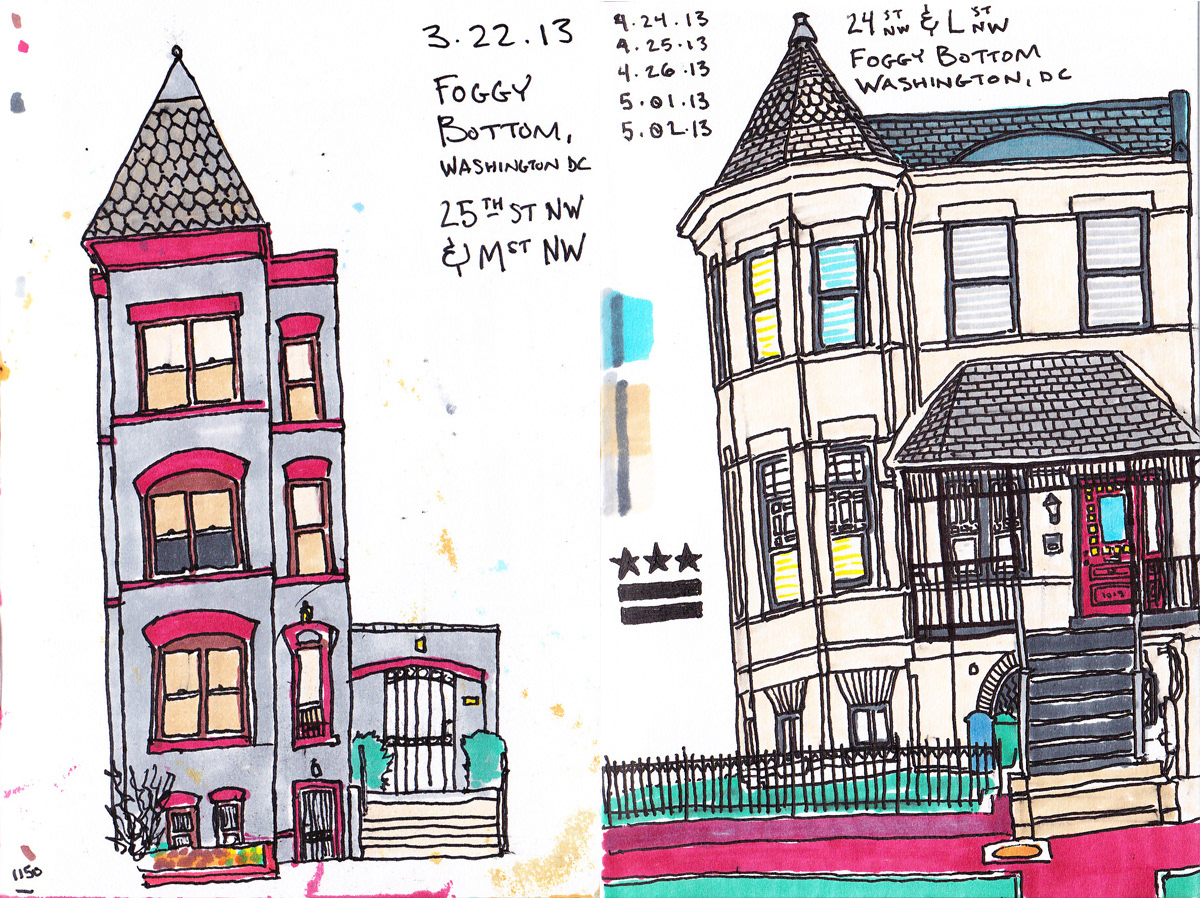 3.22.13
FOGGY
BOTTOM,
WASHINGTON DC
25TH ST NW
& M ST NW
1150
4.24.13
4.25.13
4.26.13
5.01.13
5.02.13
24 ST NW & L ST NW
FOGGY BOTTOM
WASHINGTON, DC